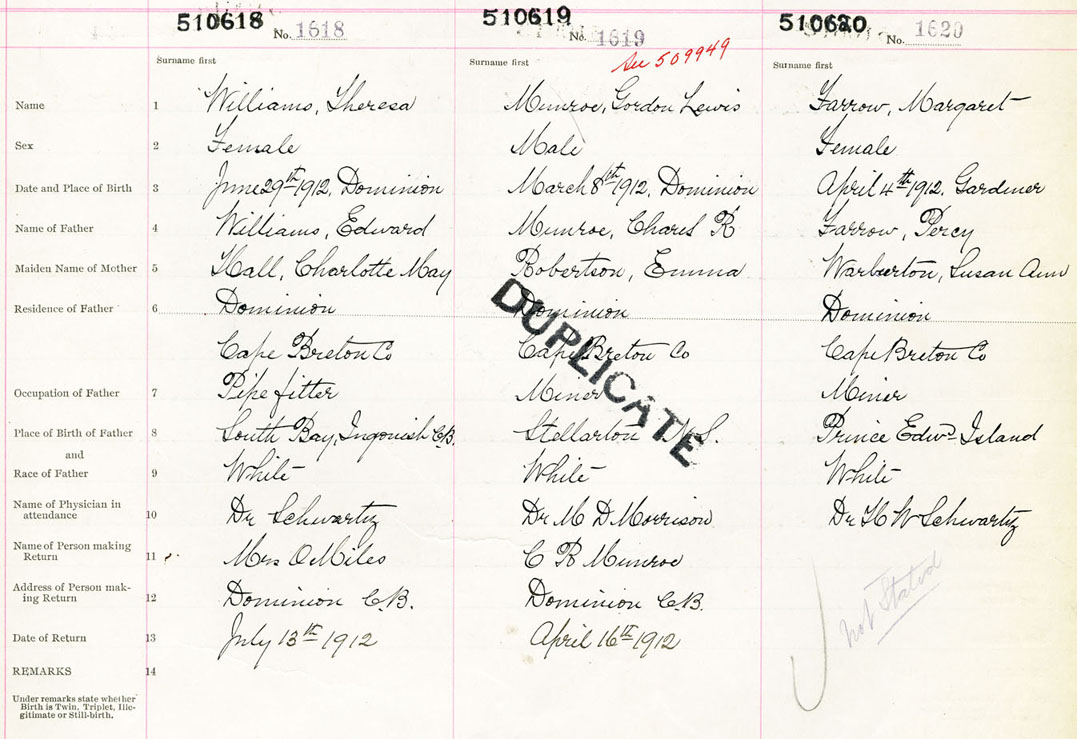 510618 No. 1618
510619 No. 1619
510620 No. 1620
See 509949
Surname first Surname first Surname first
Name 1 Williams, Theresa Munroe, Gordon Lewis Farrow, Margaret
Sex 2 Female Male Female
Date and Place of Birth 3 June 29th 1912, Dominion March 8th 1912, Dominion April 4th 1912, Gardiner
Name of Father 4 Williams, Edward Munroe, Charls R Farrow, Percy
Maiden Name of Mother 5 Hall, Charlotte May Robertson, Emma Warburton, Susan Ann
Residence of Father 6 Dominion Dominion Dominion
Cape Breton Co Cape Breton Co Cape Breton Co
DUPLICATE
Occupation of Father 7 Pipe fitter Miner Miner
Place of Birth of Father 8 South Bay, Ingonish C.B. Stellarton N.S. Prince Edwd Island
and
Race of Father 9 White White White
Name of Physician in
attendance 10 Dr Schwartz Dr M D Morrison Dr H W Schwartz
Name of Person making
Return 11 Mrs O Miles C R Munroe
Address of Person mak-
ing Return 12 Dominion C.B. Dominion C.B.
not Stated
Date of Return 13 July 13th 1912 April 16th 1912
REMARKS 14
Under remarks state whether
Birth is Twin, Triplet, Ille-
gitimate or Still-birth.